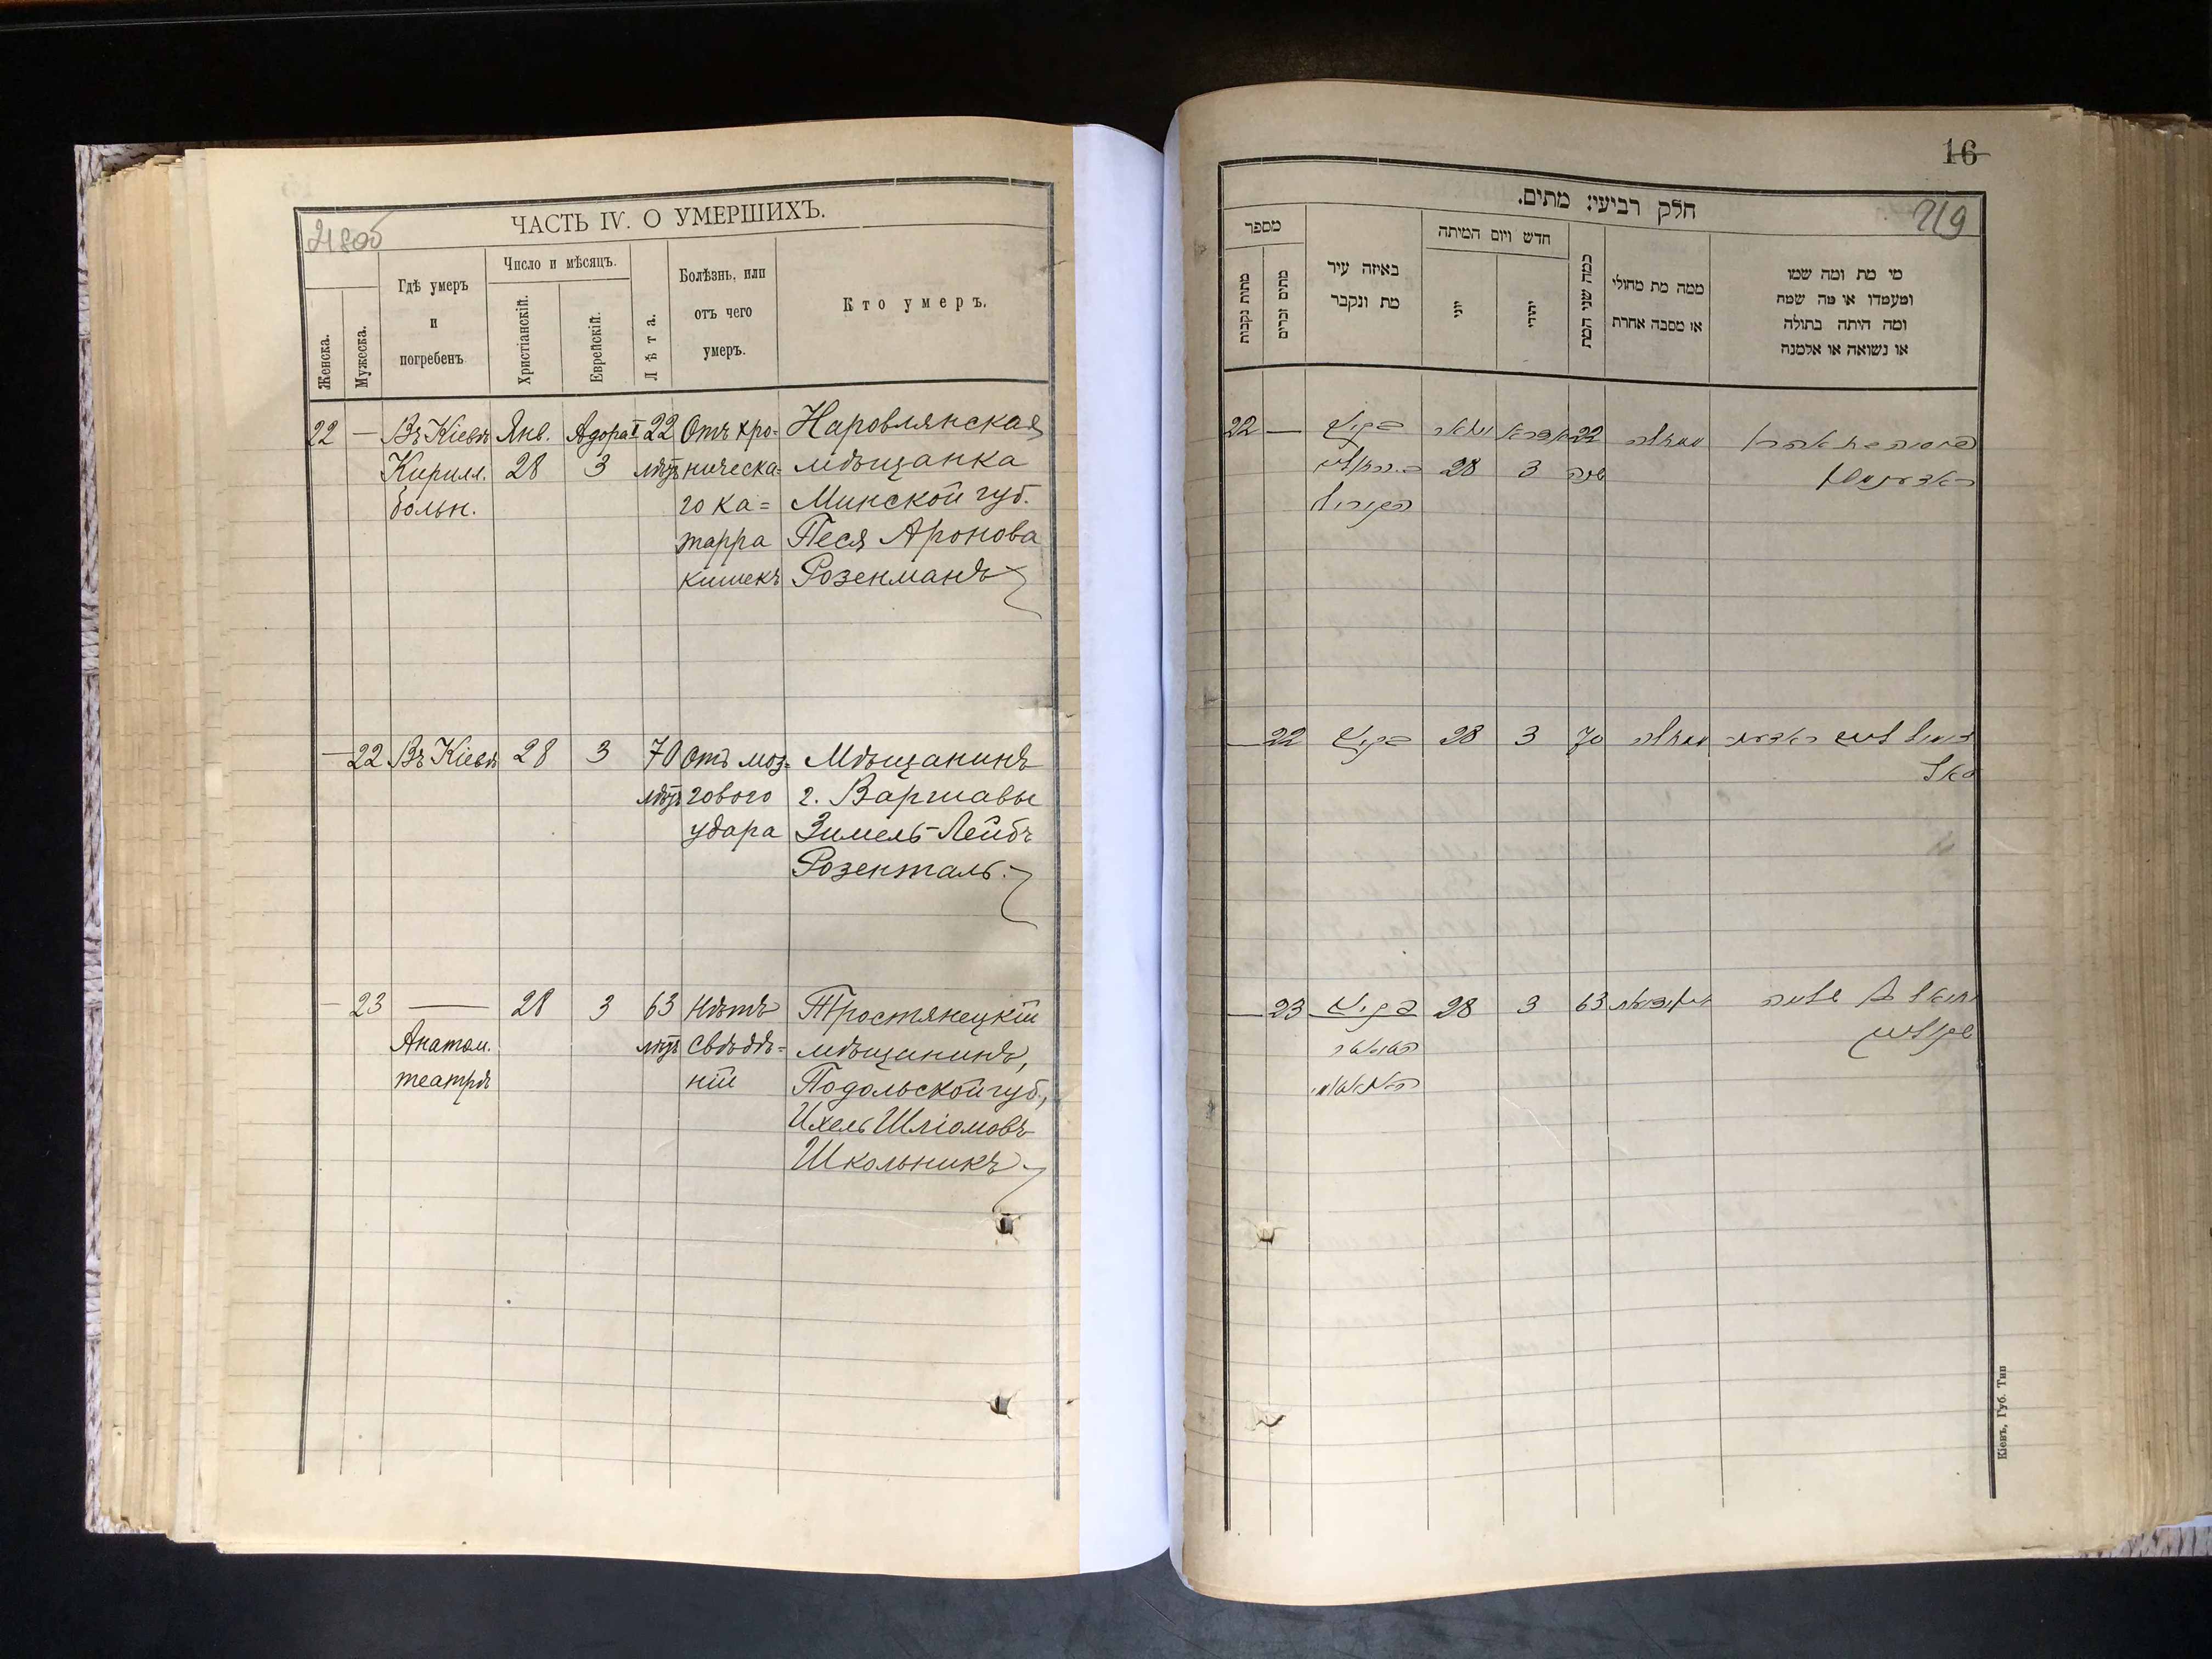 218об
ЧАСТЬ IV. О УМЕРШИХЪ.
Женска.
Мужеска.
Гдѣ умеръ
и
погребенъ
Число и мѣсяцъ.
Христіанскій.
Еврейскій.
Лѣта.
Болѣзнь, или
отъ чего
умеръ.
Кто умеръ.
22 — Въ Кіевѣ Янв. Адора I 22 Отъ хро- Наровлянская
Кирилл. 28 3 лѣтъ ническа- мѣщанка
больн. го ка= Минской губ.
тарра Песя Аронова
кишекъ Розенманъ
— 22 Въ Кіевѣ 28 3 70 отъ моз- Мѣщанинъ
лѣтъ гового г. Варшавы
удара Зимель-Лейбъ
Розенталь.
— 23 — 28 3 63 Нѣтъ Тростянецкій
Анатом. лѣтъ свѣдѣ- мѣщанинъ,
театрѣ ній Подольской губ.,
Ихель Шліомовъ
Школьникъ
16
219
חלק רביעי: מתים.
מספר
מתות נקבות
מתים זכרים
באיזה עיר
מת ונקבר
חדש ויום המיתה
יוני
יהודי
כמה שני המת
ממה מת מחולי
או מסבה אחרת
מי מת ומה שמו
ומעמדו או מה שמה
ומה היתה בתולה
או נשואה או אלמנה
22 — בקיוב 22 ממחלה
28 3 שנה
— 22 בקיוב 28 3 70 ממחלה
— 23 בקיוב 28 3 63
Кіевъ, Губ. Тип